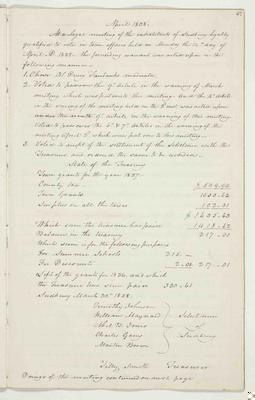 April 1838.
At a legal meeting of the inhabitants of Sudbury legally
qualified to vote in town affairs held on Monday the 2d day of
April A.D. 1838. the foregoing warrant was acted upon in the
following manner
1. Chose Drury Fairbanks moderator.
2. Voted to the 9th article in the warning of March
meeting which was put unto this meeting. And the 12 article
in the warning of the meeting was acted upon
under the article in the warning of this meeting.
Voted to the 6th & 7th articles in the warning of the
meeting April 2d which were put over to this meeting.
3. Voted to accept of the settlement of the Selectmen with the
Treasurer and ordered the same to be recorded.
State of the Treasury
Town grants for the year 1837.
County tax
Town Grants
Surplus on all the taxes 102.01
$ 1635.63
Which sum the treasurer has paid 1418.62
Balance in the treasury 217.01
Which sum is for the following purposes
For Summer Schools 215.—
For Discounts 2.01 217.01
of the grants for 1836 and which
the Treasurer has since paid
Sudbury March 20th 1838.
Timothy Johnson
William Maynard Selectmen
Abel B. Jones of
Charles Gass Sudbury
Martin Brown
Tilly Smith Treasurer
Doings of this meeting continued on next page